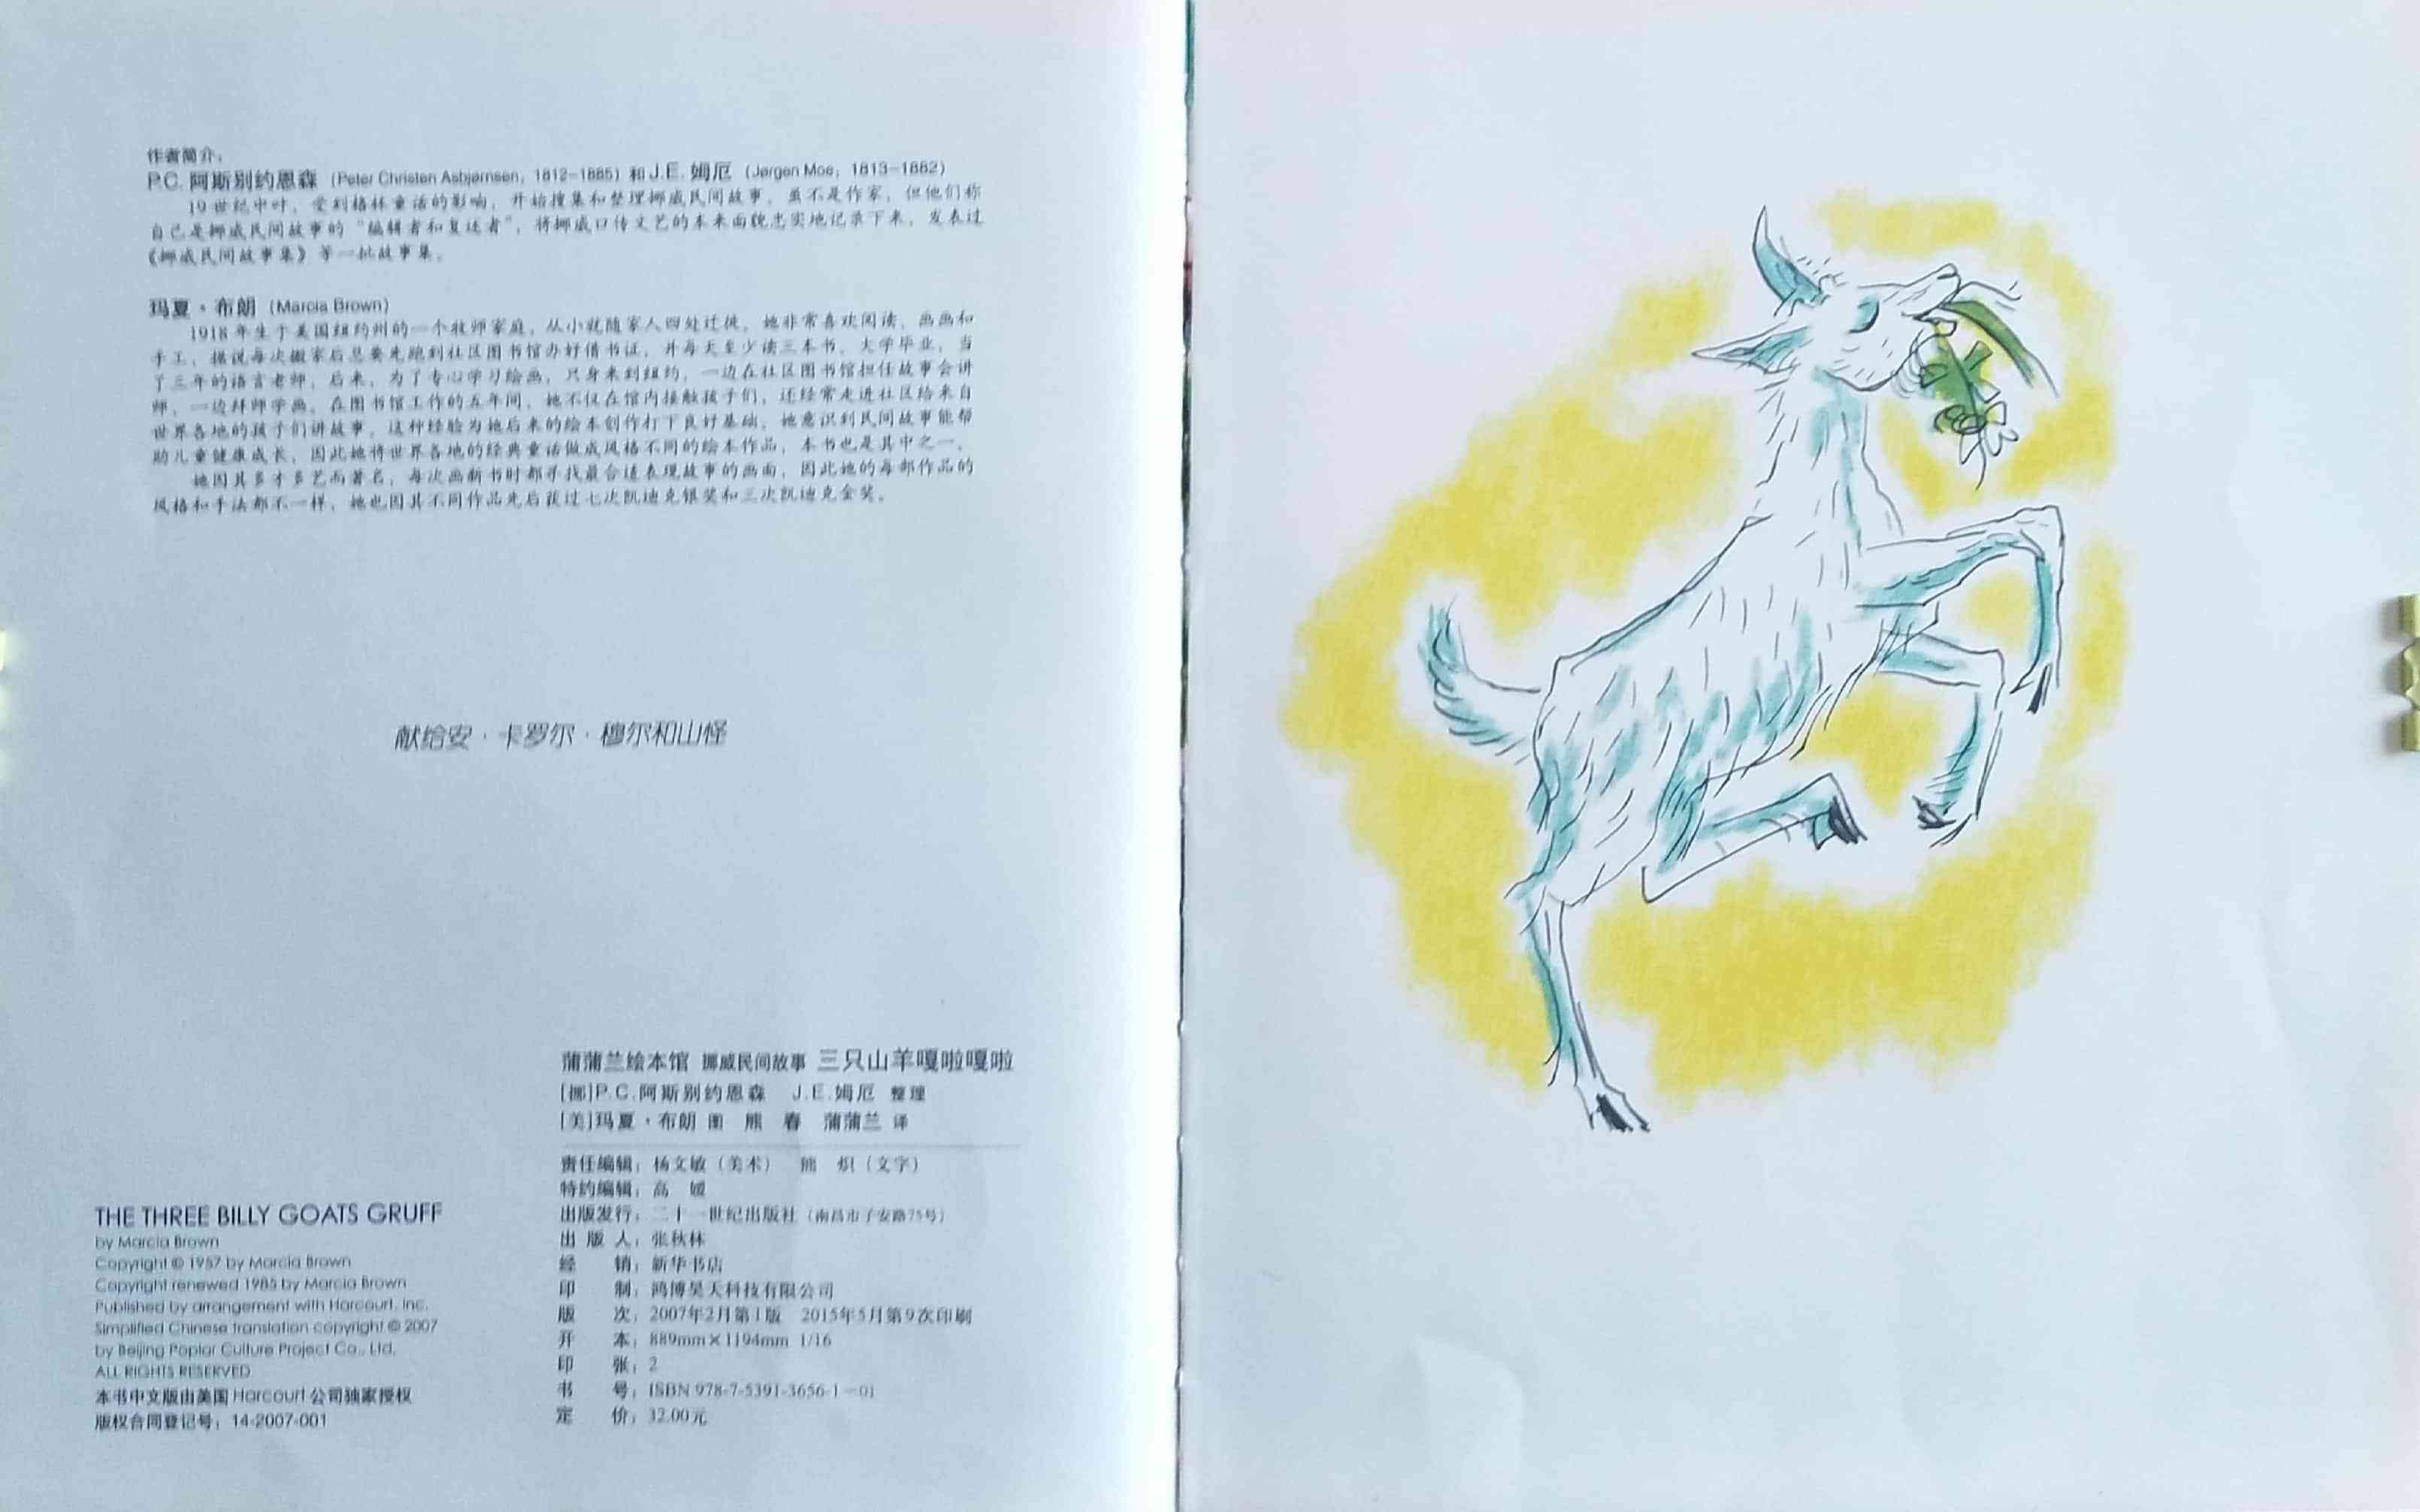 作者简介：
P.C. 阿斯别约恩森（Peter Christen Asbjørnsen，1812-1885）和 J.E. 姆厄（Jørgen Moe，1813-1882）
19世纪中叶，受到格林童话的影响，开始搜集和整理挪威民间故事，虽不是作家，但他们称
自己是挪威民间故事的“编辑者和复述者”，将挪威口传文艺的本来面貌忠实地记录下来，发表过
《挪威民间故事集》等一批故事集。
玛夏·布朗（Marcia Brown）
1918年生于美国纽约州的一个牧师家庭，从小就随家人四处迁徙，她非常喜欢阅读、画画和
手工，据说每次搬家后总要先跑到社区图书馆办好借书证，并每天至少读三本书。大学毕业，当
了三年的语言老师，后来，为了专心学习绘画，只身来到纽约，一边在社区图书馆担任故事会讲
师，一边拜师学画。在图书馆工作的五年间，她不仅在馆内接触孩子们，还经常走进社区给来自
世界各地的孩子们讲故事，这种经验为她后来的绘本创作打下良好基础。她意识到民间故事能帮
助儿童健康成长，因此她将世界各地的经典童话做成风格不同的绘本作品，本书也是其中之一。
她因其多才多艺而著名，每次画新书时都寻找最合适表现故事的画面，因此她的每部作品的
风格和手法都不一样，她也因其不同作品先后获过七次凯迪克银奖和三次凯迪克金奖。
献给安·卡罗尔·穆尔和山怪
蒲蒲兰绘本馆 挪威民间故事 三只山羊嘎啦嘎啦
[挪]P.C.阿斯别约恩森 J.E.姆厄 整理
[美]玛夏·布朗 图 熊 春 蒲蒲兰 译
责任编辑：杨文敏（美术） 熊 炽（文字）
特约编辑：高 媛
出版发行：二十一世纪出版社（南昌市子安路75号）
出 版 人：张秋林
经 销：新华书店
印 制：鸿博昊天科技有限公司
版 次：2007年2月第1版 2015年5月第9次印刷
开 本：889mm×1194mm 1/16
印 张：2
书 号：ISBN 978-7-5391-3656-1-01
定 价：32.00元
THE THREE BILLY GOATS GRUFF
by Marcia Brown
Copyright © 1957 by Marcia Brown
Copyright renewed 1985 by Marcia Brown
Published by arrangement with Harcourt, Inc.
Simplified Chinese translation copyright © 2007
by Beijing Poplar Culture Project Co., Ltd.
ALL RIGHTS RESERVED
本书中文版由美国 Harcourt 公司独家授权
版权合同登记号：14-2007-001